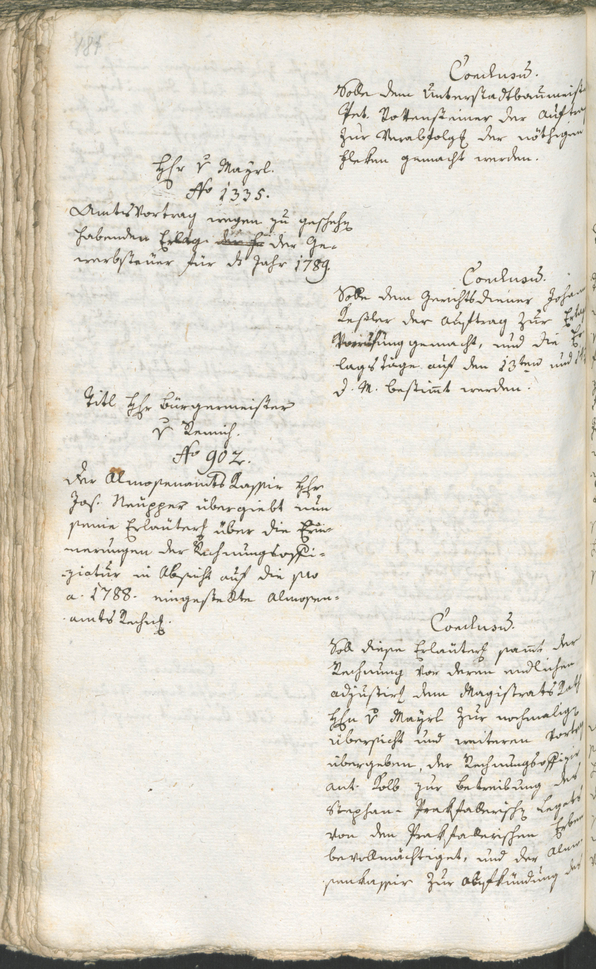 184
Conclusũ.
Solle dem Unterstadtbaumeist
Pet. Rottensteiner der Auftra
zur Verabfolge der nöthigen
Fleken gemacht werden.
Hhr v Mayrl.
No 1335.
AmtsVortrag wegen zu gescheh
habenden Erlag der Ge-
werbsteuer für ds Jahr 1789
Conclusũ.
Solle dem Gerichtsdiener Johan
Keßler der Auftrag zur
gemacht, und die Er
lagstäge auf den 13ten und
d. M. bestim̅t werden.
Titl Hhr Bürgermeister
v Remich.
No 902.
Der Almosenamts Kassier Hhr
Jos. Neupper übergiebt nun
seine Erläuter über die Erin-
nerungen der Rechnungsoffi-
ziatur in Absicht auf die pro
a. 1788. eingestellte Almosen-
amts Rechng.
Conclusũ.
Soll diese Erläuter sam̅t der
Rechnung vor deren endlichen
adjustir dem Magistrats Rath
Hhn v Mayrl zur nochmalig
übersicht und weiteren Vortr
übergeben, der Rechnungsoffizir
Ant. Kolb zur betreibung des
Stephan-
von den Erben
bevollmächtiget, und der Almo
senkassir zur Aufkündung des